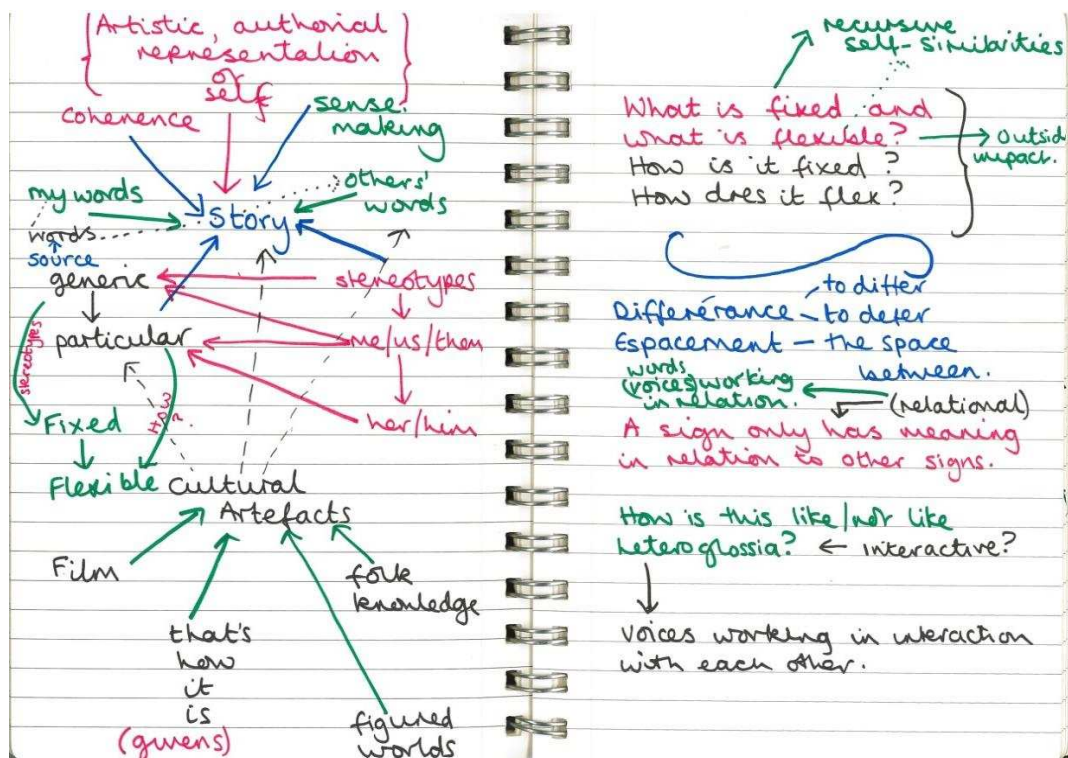 Artistic, authorial
representation
of
self
coherence
sense
making
my words
others'
words
story
words
source
generic
stereotypes
particular
me/us/them
stereotypes
How?
Fixed
her/him
Flexible
Cultural
Artefacts
Film
folk
knowledge
that's
how
it
is
(givens)
figured
worlds
recursive
self-similarities
What is fixed and
what is flexible?
outsid
impact.
How is it fixed?
How does it flex?
to differ
Differérance
to defer
Espacement – the space
between.
words
(voices) working
in relation.
(relational)
A sign only has meaning
in relation to other signs.
How is this like/not like
heteroglossia? ← interactive?
Voices working in interaction
with each other.